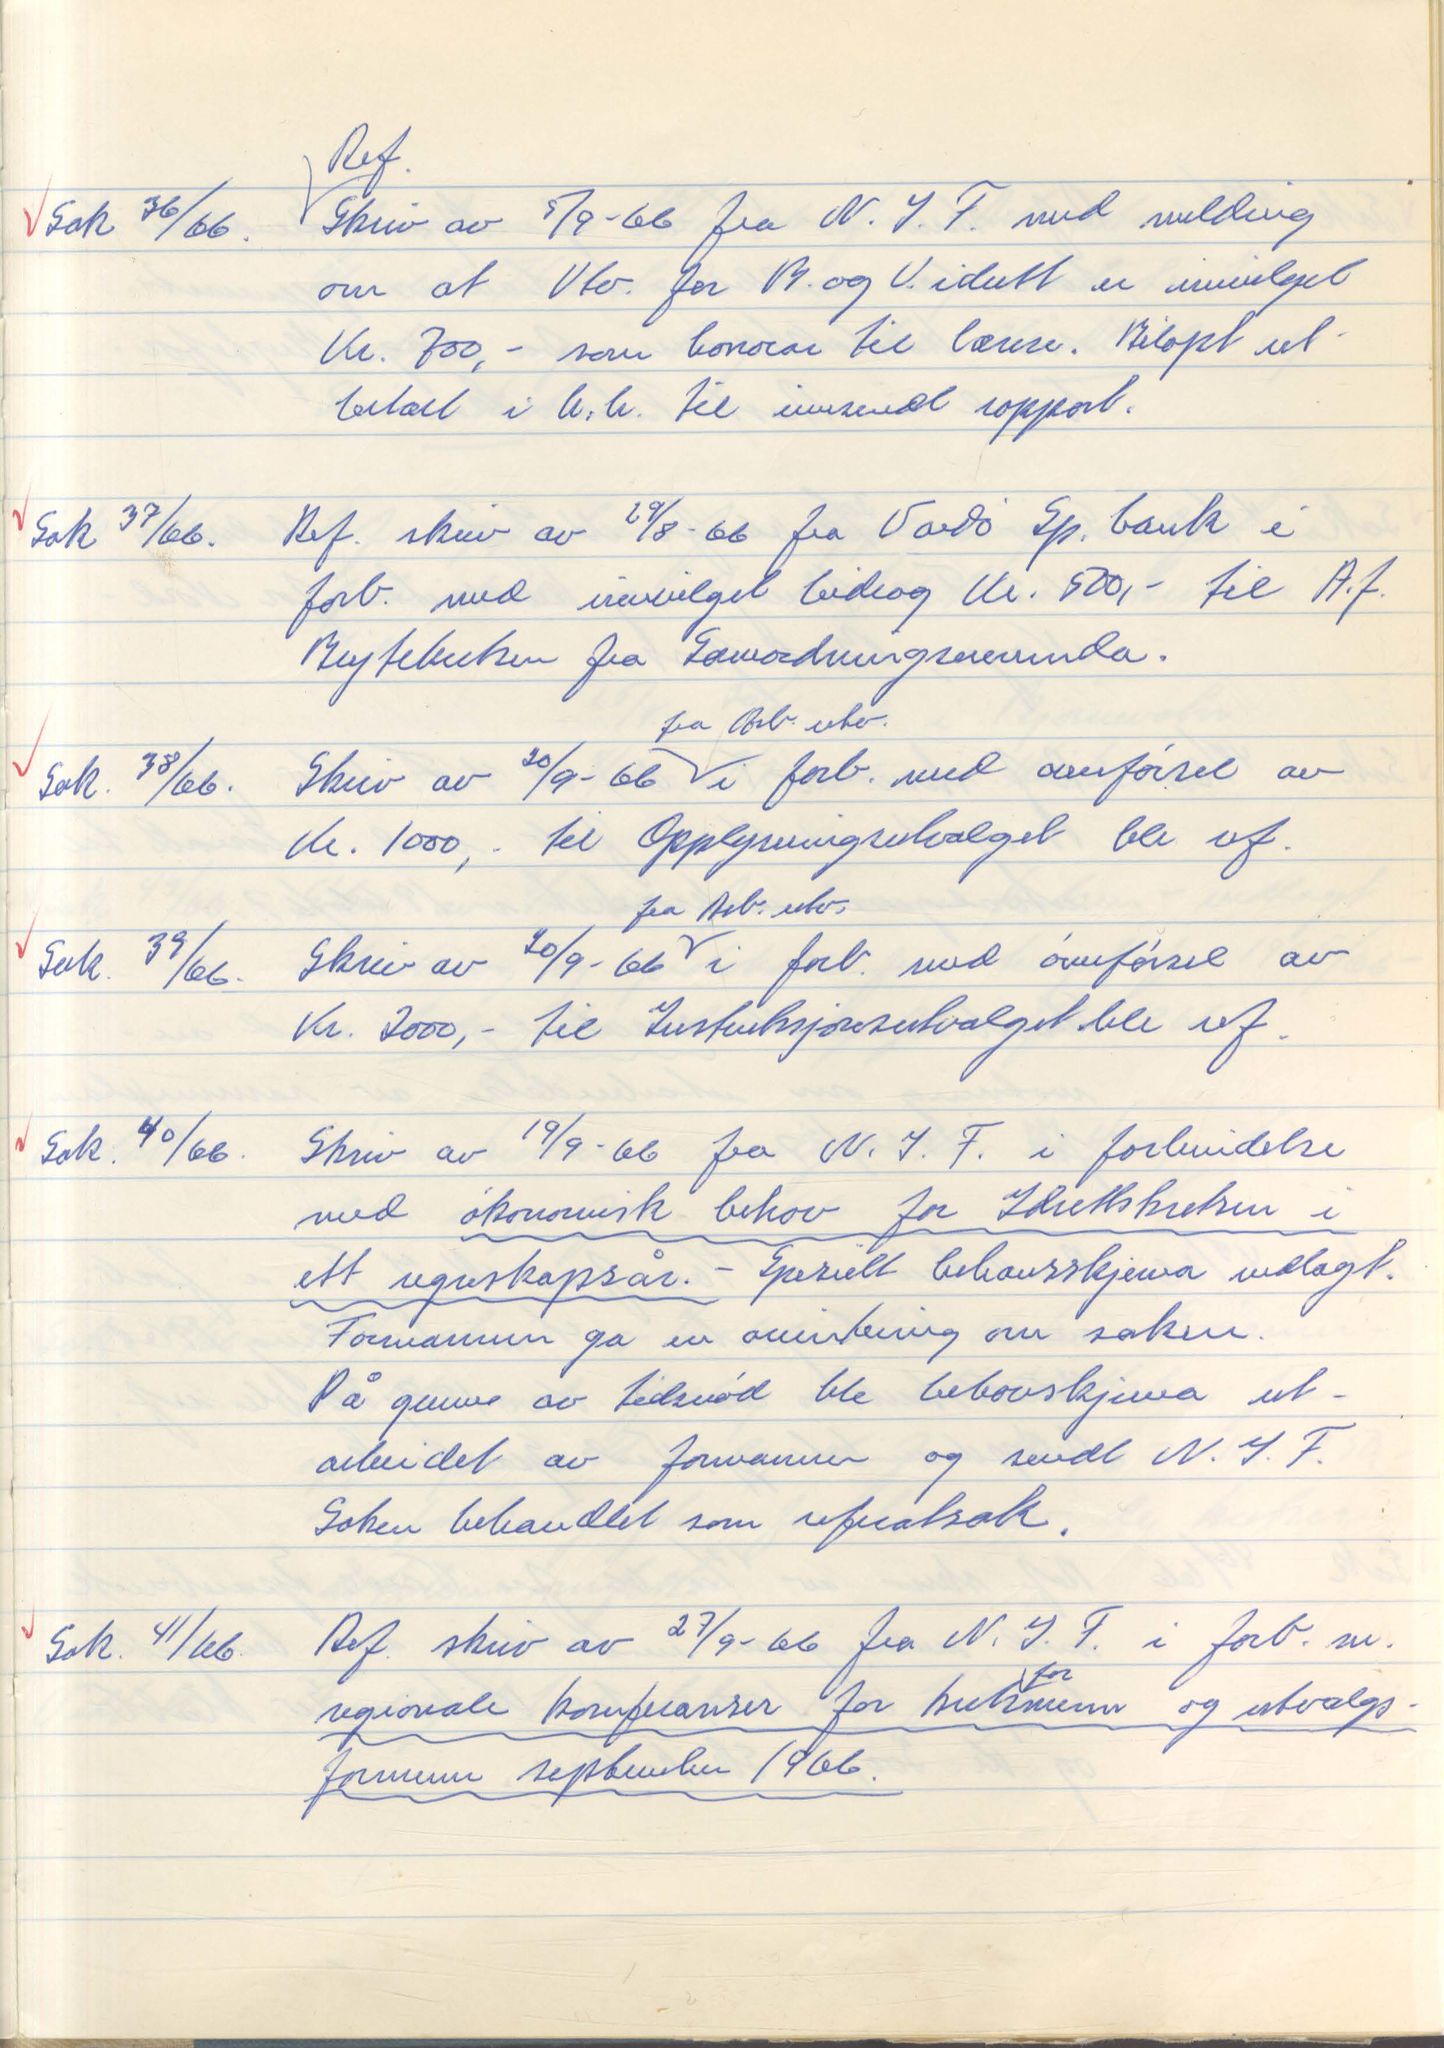 Ref.
Sak 36/66. Skriv av 5/9-66 fra N. I. F. med melding
om at Utv. for B. og U. idrett er innvilget
Kr. 700,- som honorar til lærere. Beløpt ut-
betalt i h.h. til innsendt rapport.
Sak 37/66. Ref. skriv av 29/8-66 fra Vardö Sp. bank i
forb. med innvilget bidrag Kr. 500,- til A.f.
Bryteleken fra Samordningsnemnda.
fra Arb. utv.
Sak. 38/66. Skriv av 20/9-66 i forb. med overförsel av
Kr. 1000,- til Opplysningsutvalget ble ref.
fra Arb. utv.
Sak. 39/66. Skriv av 20/9-66 i forb. med överförsel av
Kr. 2000,- til Instruksjonsutvalget ble ref.
Sak. 40/66. Skriv av 19/9-66 fra N. I. F. i forbindelse
med ökonomisk behov for Idrettskretsen i
ett regnskapsår. - Spesielt behovsskjema vedlagt.
Formannen ga en orientering om saken.
På grunn av tidsnöd ble behovskjema ut-
arbeidet av formannen og sendt N. I. F.
Saken behandlet som referatsak.
Sak. 41/66. Ref. skriv av 27/9-66 fra N. I. F. i forb. m.
for
regionale konferanser for kretsmenn og utvalgs-
formenn september 1966.